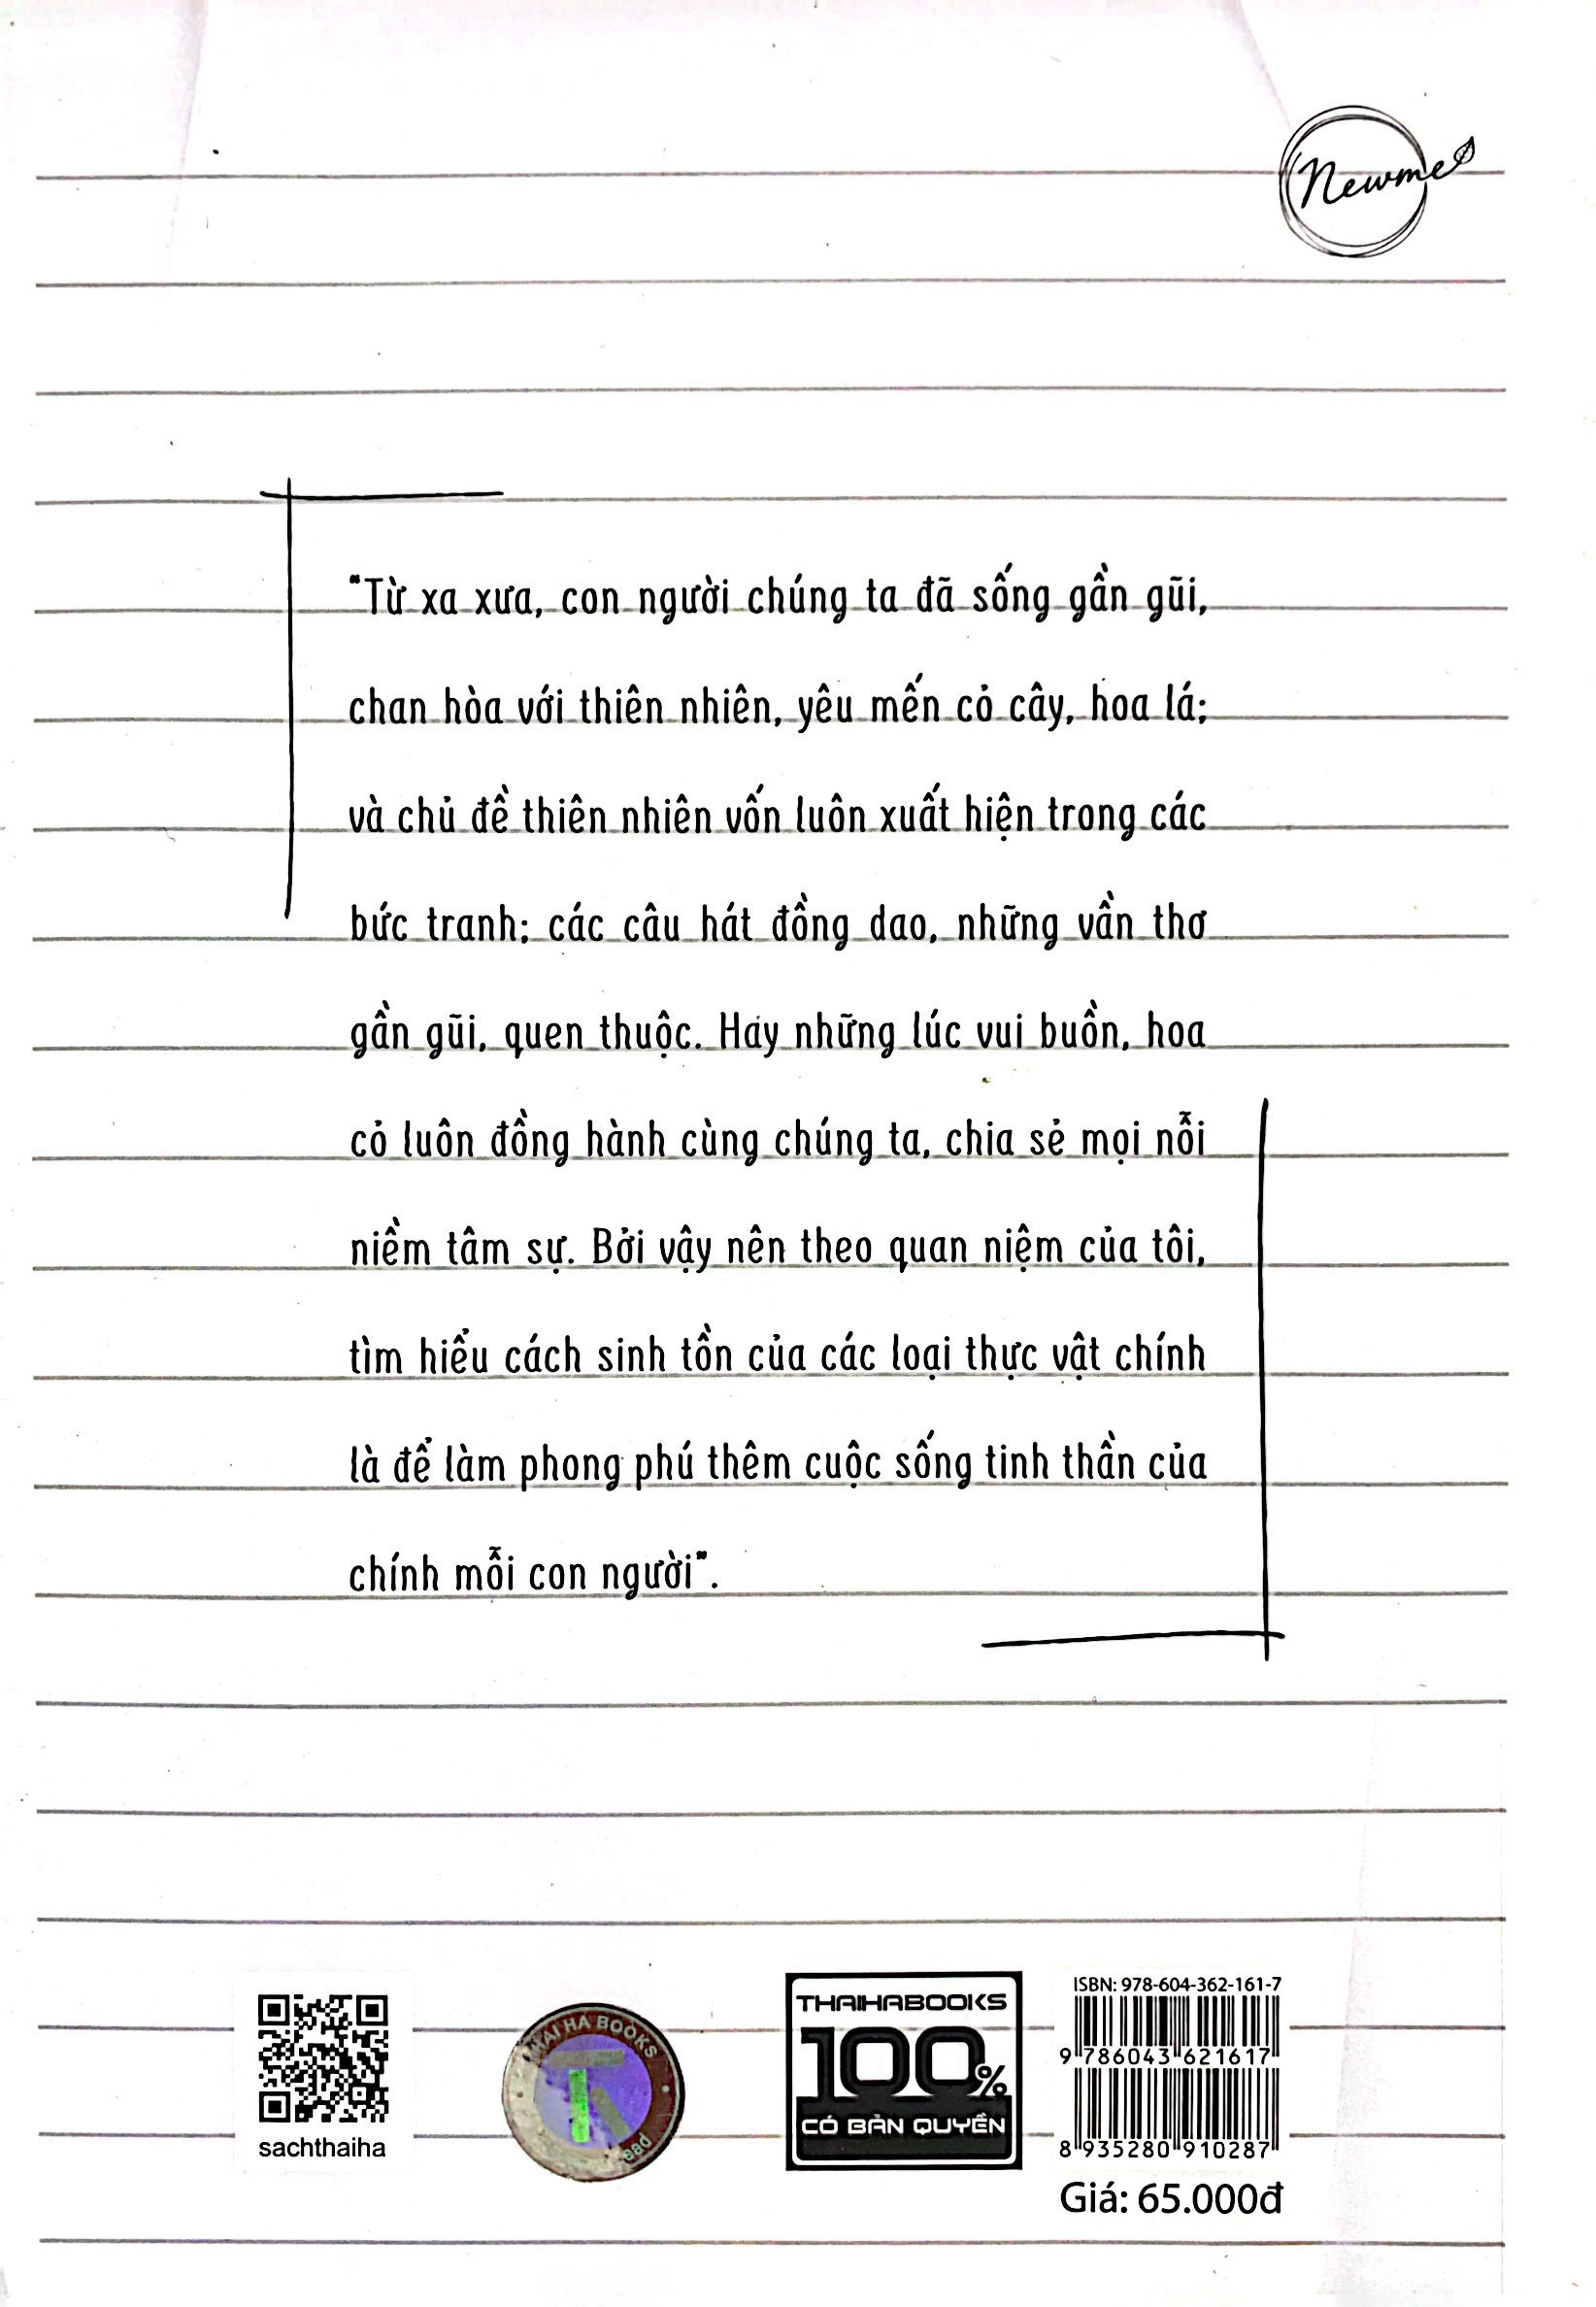 Newme
"Từ xa xưa, con người chúng ta đã sống gần gũi,
chan hòa với thiên nhiên, yêu mến cỏ cây, hoa lá;
và chủ đề thiên nhiên vốn luôn xuất hiện trong các
bức tranh; các câu hát đồng dao, những vần thơ
gần gũi, quen thuộc. Hay những lúc vui buồn, hoa
cỏ luôn đồng hành cùng chúng ta, chia sẻ mọi nỗi
niềm tâm sự. Bởi vậy nên theo quan niệm của tôi,
tìm hiểu cách sinh tồn của các loại thực vật chính
là để làm phong phú thêm cuộc sống tinh thần của
chính mỗi con người".
sachthaiha
HAI HA BOOKS
THAIHABOOKS
100%
CÓ BẢN QUYỀN
ISBN: 978-604-362-161-7
9 786043 621617
8 935280 910287
Giá: 65.000đ